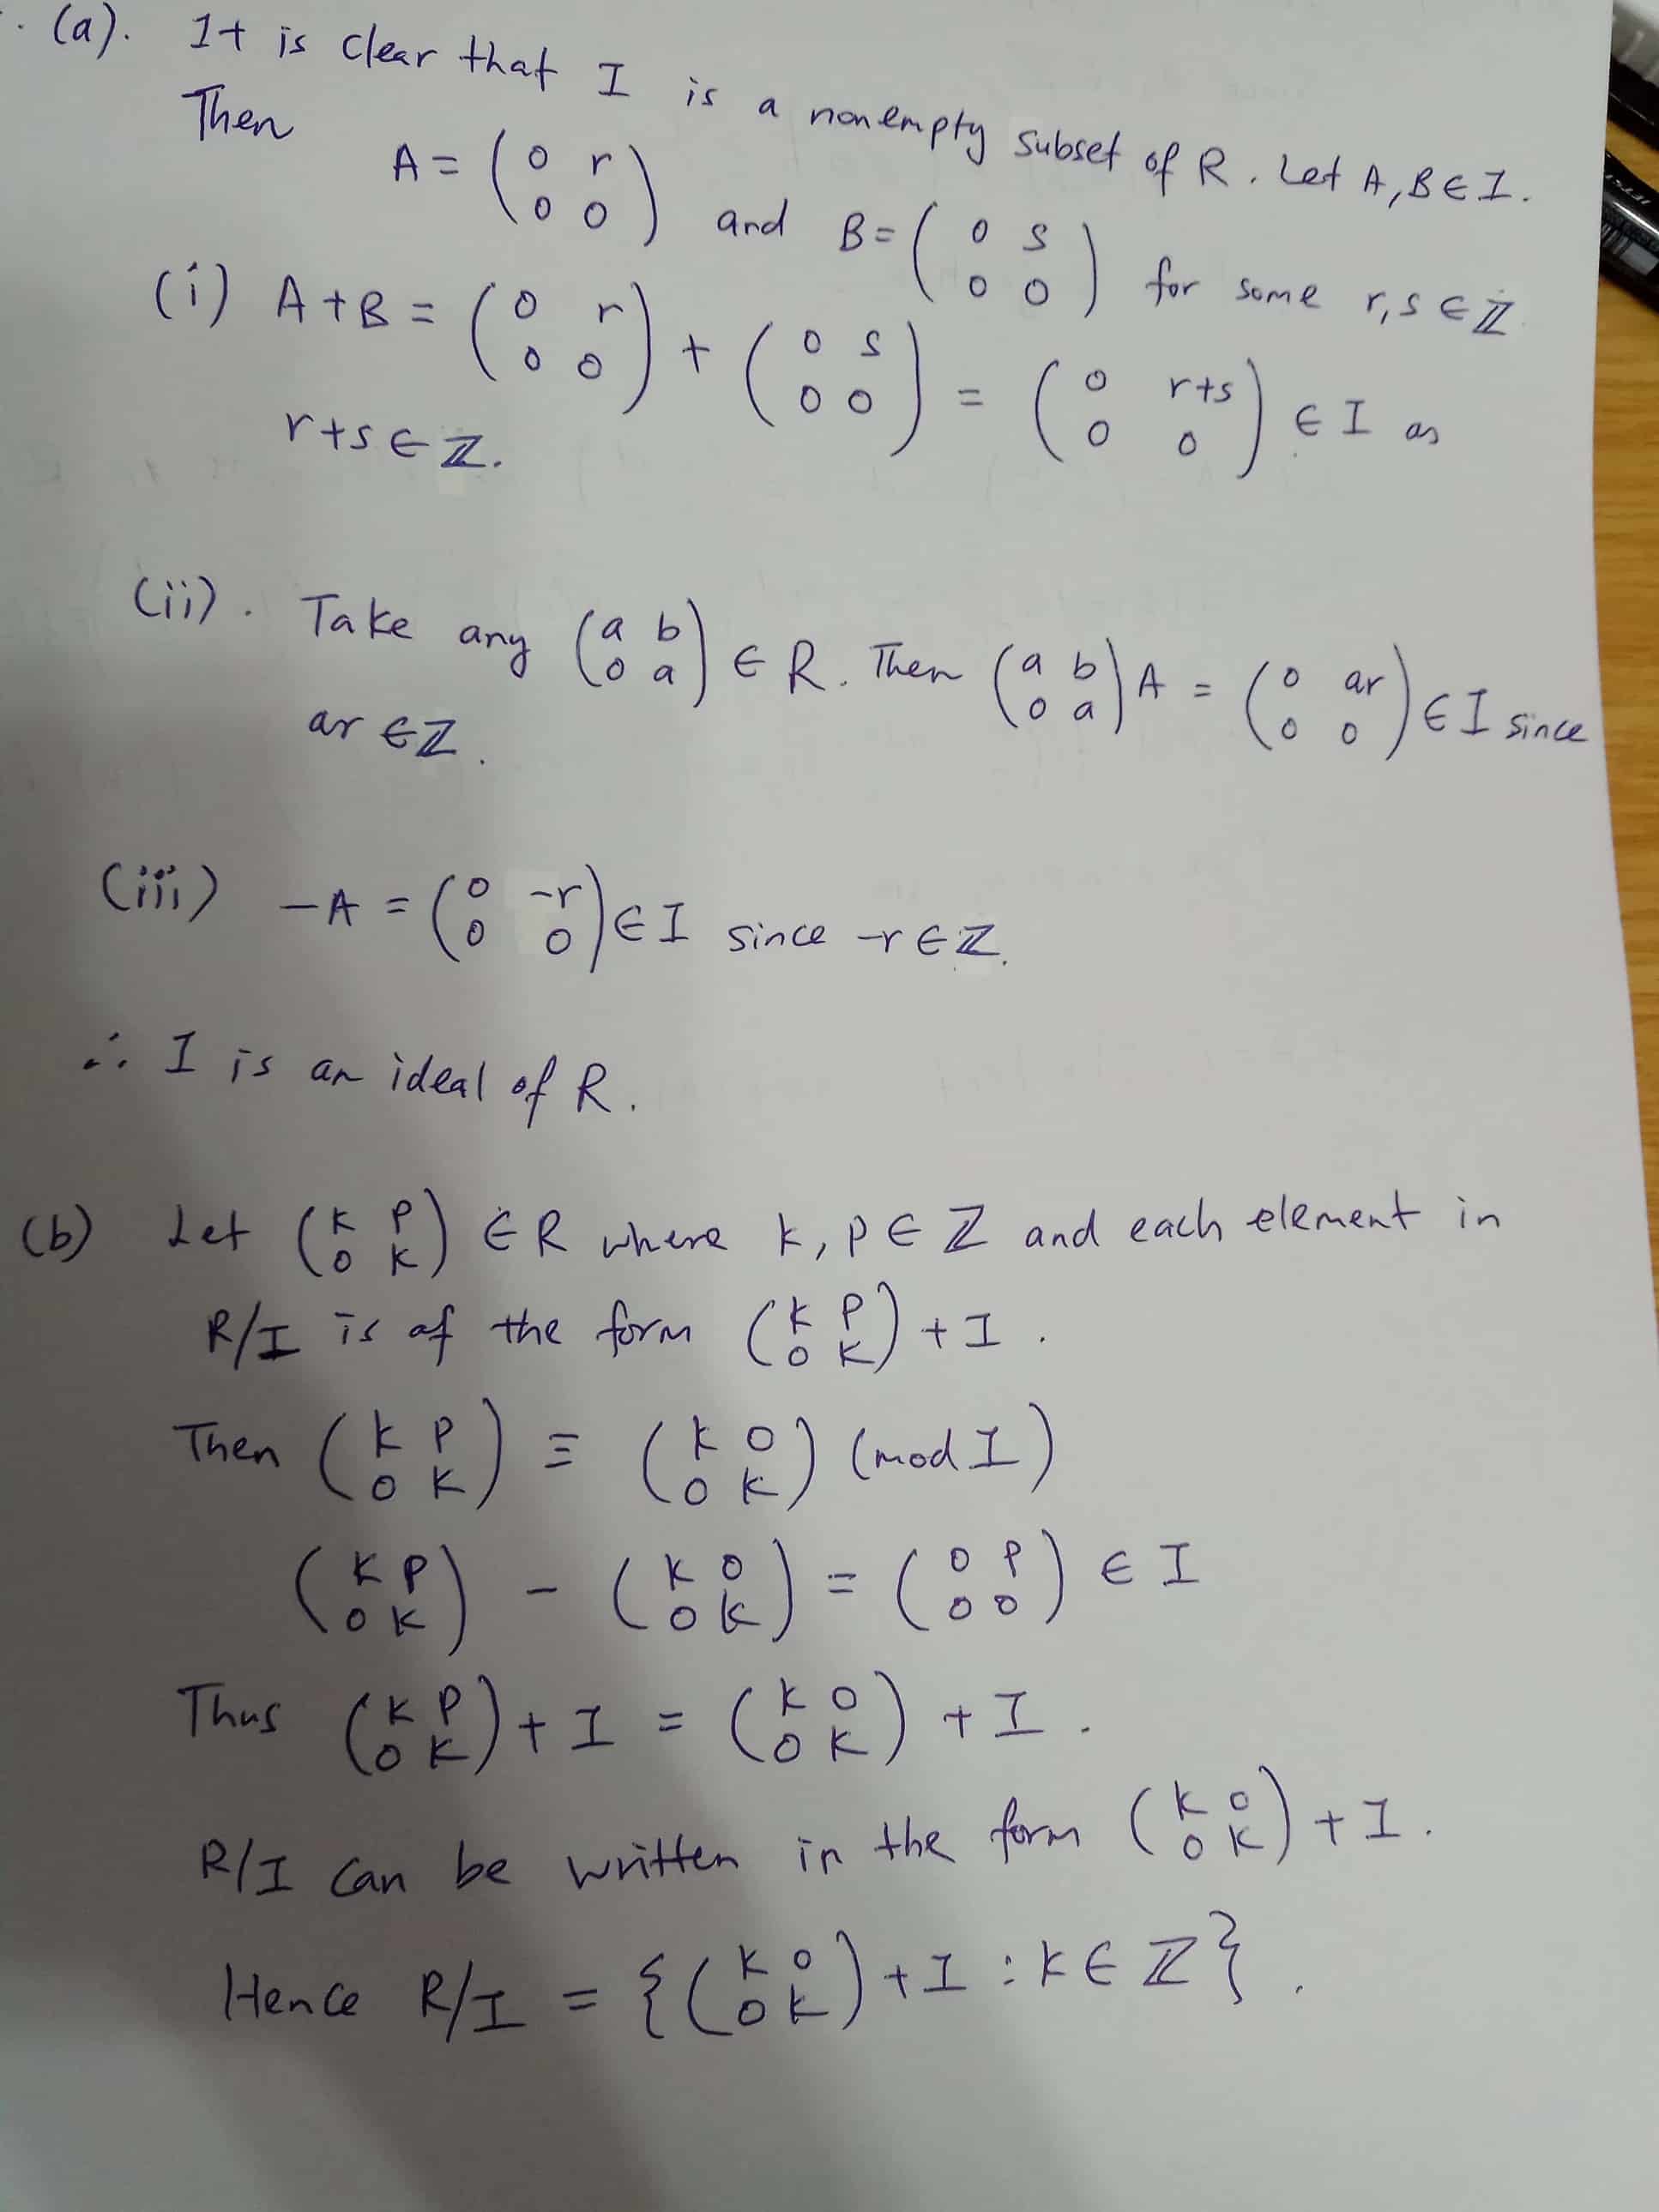 (a). It is clear that I is a nonempty subset of R. Let A, B ∈ I.
Then A = (0 r; 0 0) and B = (0 s; 0 0) for some r, s ∈ ℤ
(i) A + B = (0 r; 0 0) + (0 s; 0 0) = (0 r+s; 0 0) ∈ I as
r+s ∈ ℤ.
(ii). Take any (a b; 0 a) ∈ R. Then (a b; 0 a) A = (0 ar; 0 0) ∈ I since
ar ∈ ℤ.
(iii) -A = (0 -r; 0 0) ∈ I since -r ∈ ℤ.
∴ I is an ideal of R.
(b) Let (k p; 0 k) ∈ R where k, p ∈ ℤ and each element in
R/I is of the form (k p; 0 k) + I.
Then (k p; 0 k) ≡ (k 0; 0 k) (mod I)
(k p; 0 k) - (k 0; 0 k) = (0 p; 0 0) ∈ I
Thus (k p; 0 k) + I = (k 0; 0 k) + I.
R/I can be written in the form (k 0; 0 k) + I.
Hence R/I = {(k 0; 0 k) + I : k ∈ ℤ}.